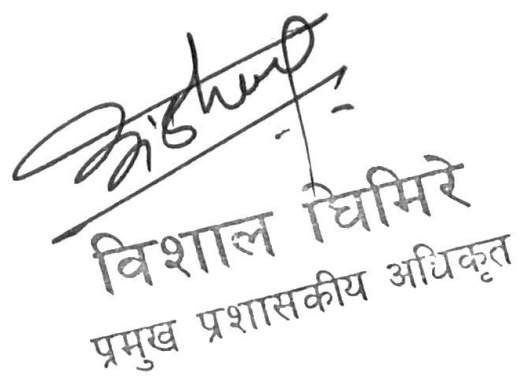 विशाल घिमिरे
प्रमुख प्रशासकीय अधिकृत